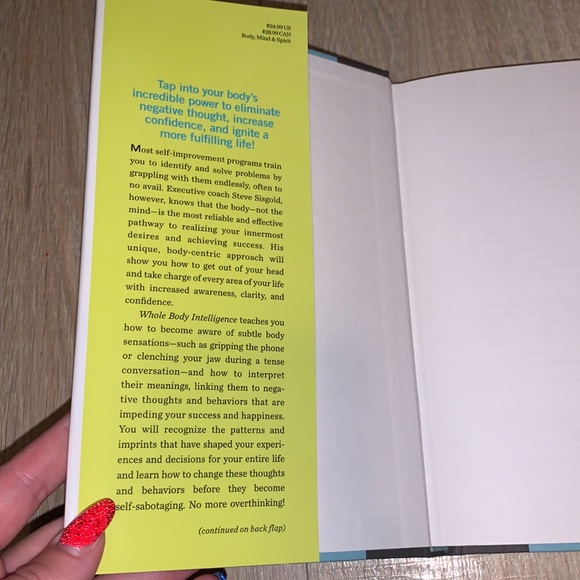 $24.99 US
$28.99 CAN
Body, Mind & Spirit
Tap into your body's
incredible power to eliminate
negative thought, increase
confidence, and ignite a
more fulfilling life!
Most self-improvement programs train
you to identify and solve problems by
grappling with them endlessly, often to
no avail. Executive coach Steve Sisgold,
however, knows that the body—not the
mind—is the most reliable and effective
pathway to realizing your innermost
desires and achieving success. His
unique, body-centric approach will
show you how to get out of your head
and take charge of every area of your life
with increased awareness, clarity, and
confidence.
Whole Body Intelligence teaches you
how to become aware of subtle body
sensations—such as gripping the phone
or clenching your jaw during a tense
conversation—and how to interpret
their meanings, linking them to nega-
tive thoughts and behaviors that are
impeding your success and happiness.
You will recognize the patterns and
imprints that have shaped your experi-
ences and decisions for your entire life
and learn how to change these thoughts
and behaviors before they become
self-sabotaging. No more overthinking!
(continued on back flap)